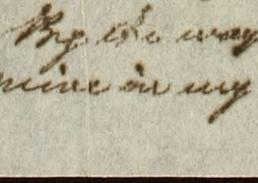 By the way
mine in my